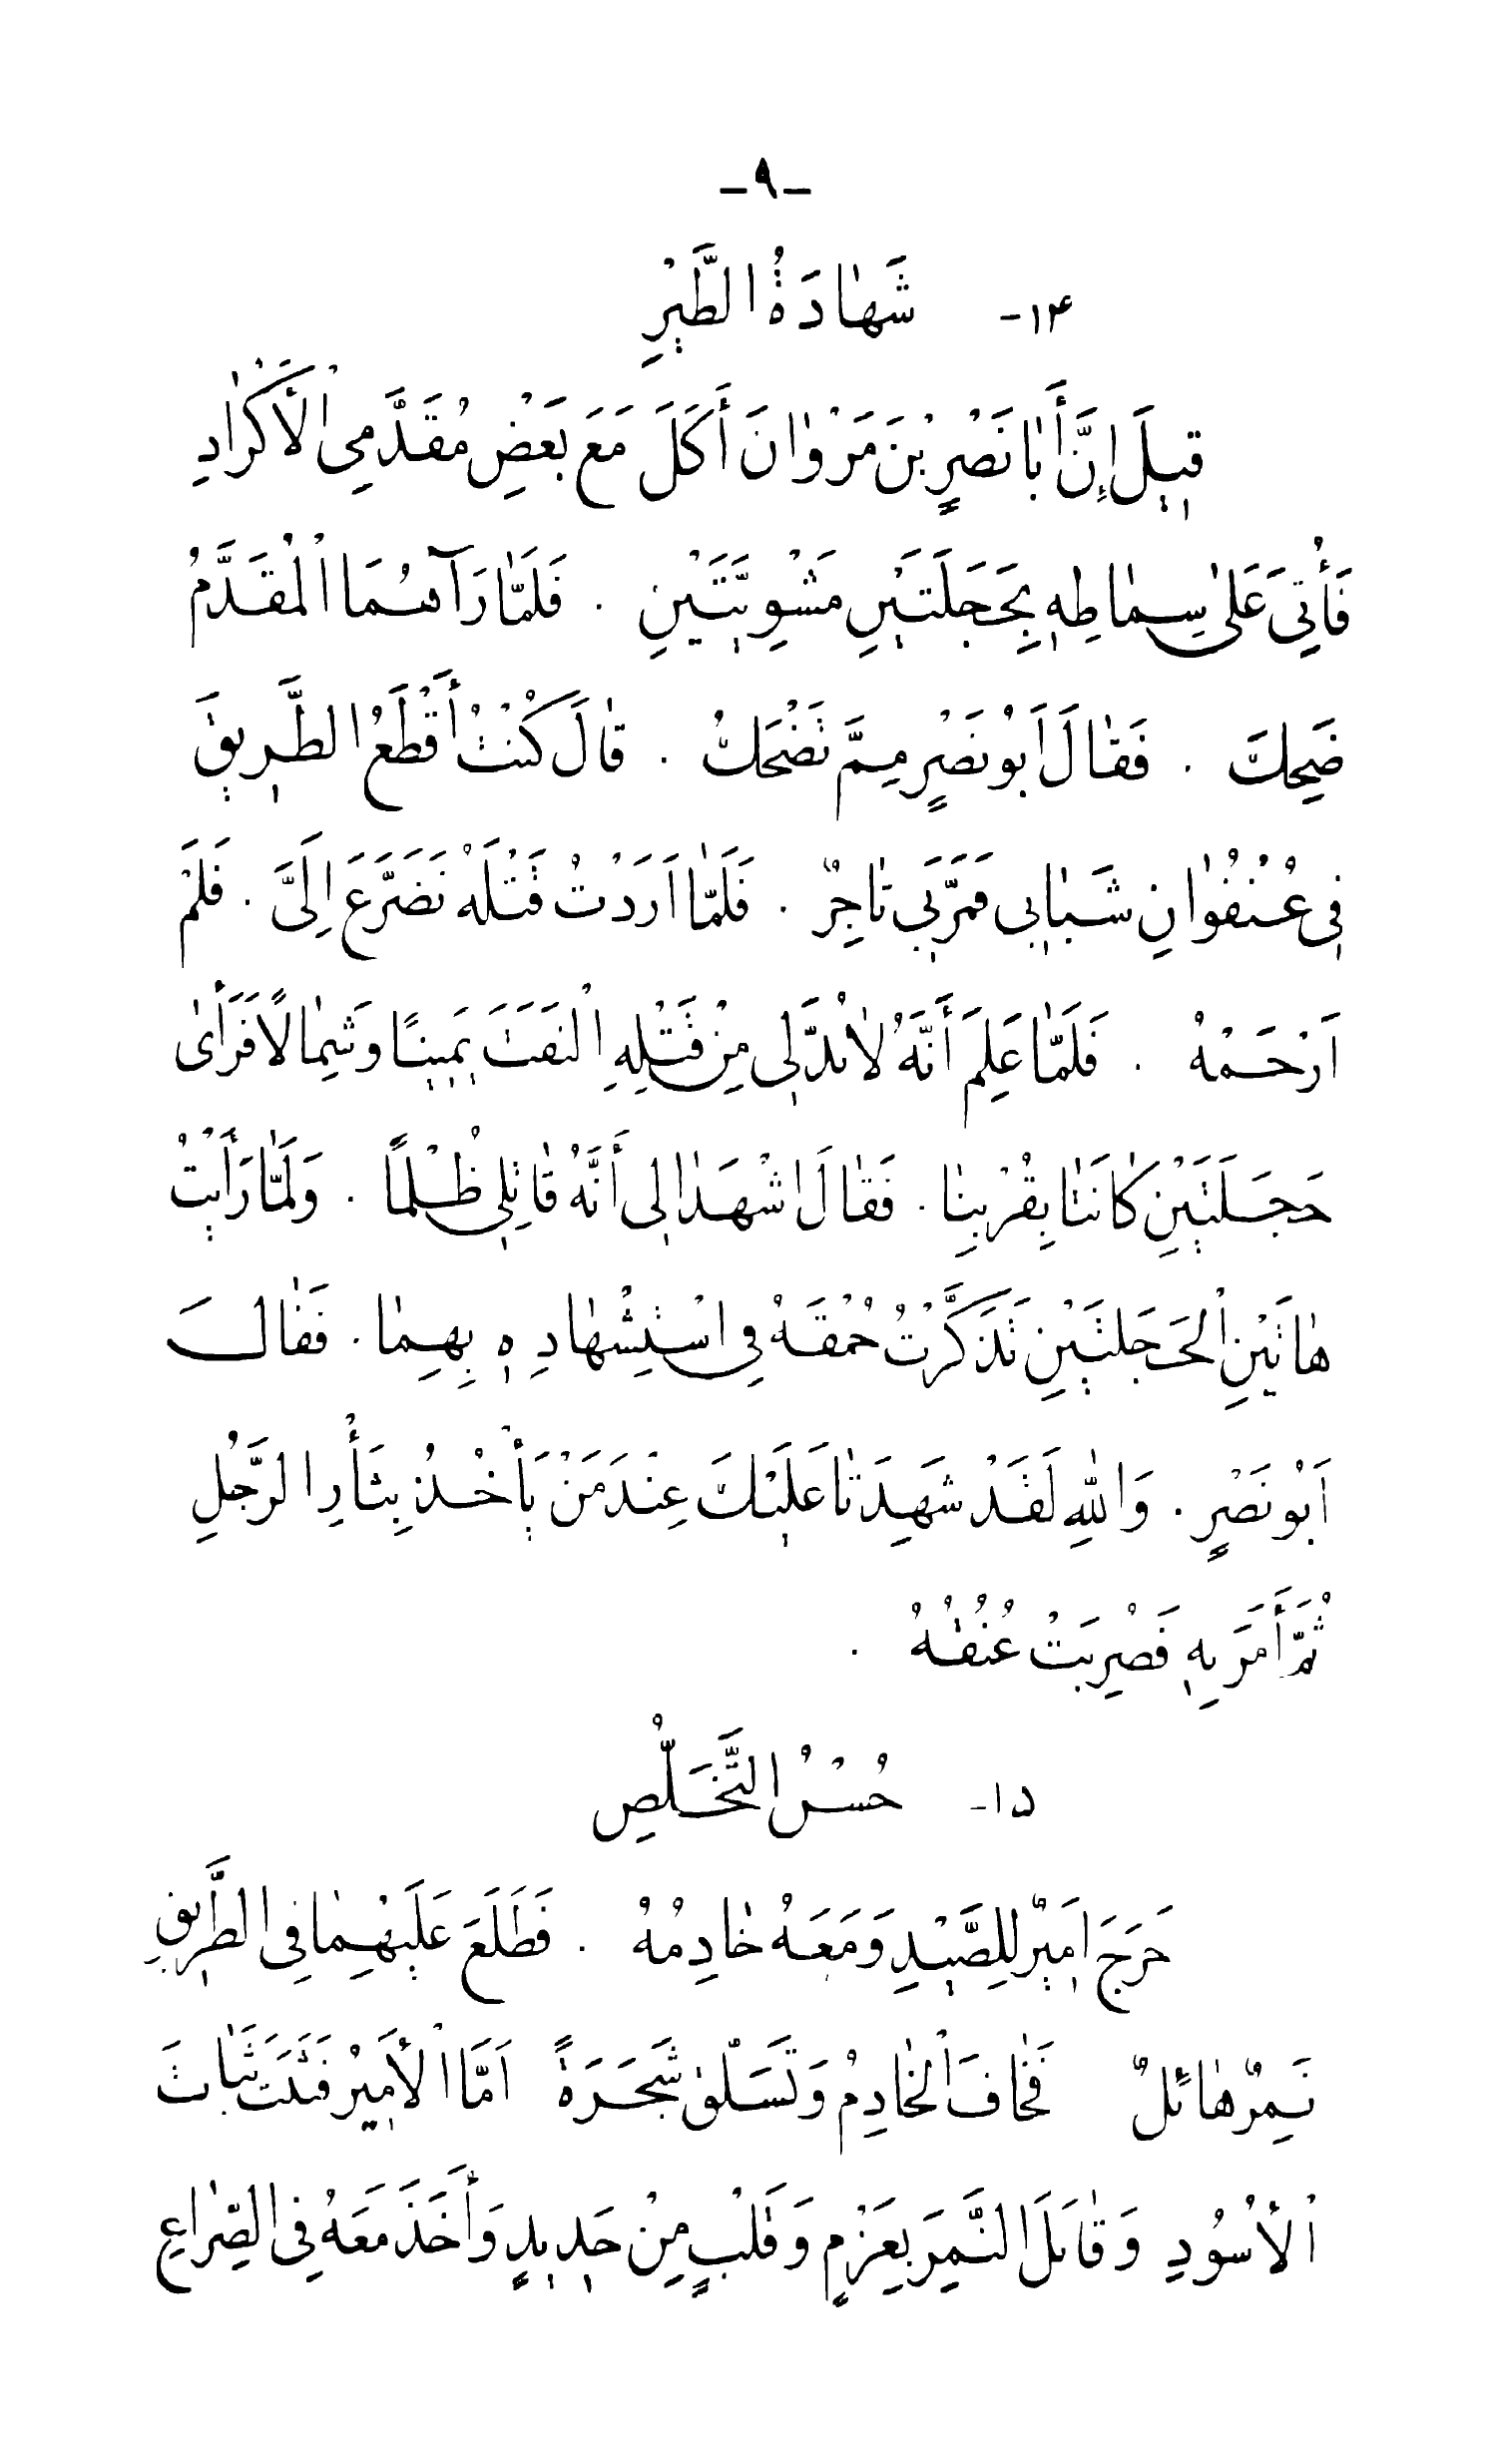 -۹-
۱۴- شَهَادَةُ الطَّيْرِ
قِيلَ إِنَّ أَبَا نَصْرِ بْنَ مَرْوَانَ أَكَلَ مَعَ بَعْضِ مُقَدَّمِي الْأَكْرَادِ
فَأُتِيَ عَلَى سِمَاطِهِ بِحَجَلَتَيْنِ مَشْوِيَّتَيْنِ . فَلَمَّا رَآهُمَا الْمُقَدَّمُ
ضَحِكَ . فَقَالَ اَبُو نَصْرٍ مِمَّ تَضْحَكُ . قَالَ كُنْتُ أَقْطَعُ الطَّرِيقَ
فِي عُنْفُوَانِ شَبَابِي فَمَرَّ بِي تَاجِرٌ . فَلَمَّا اَرَدْتُ قَتْلَهُ تَضَرَّعَ اِلَيَّ . فَلَمْ
اَرْحَمْهُ . فَلَمَّا عَلِمَ أَنَّهُ لَا بُدَّ لِي مِنْ قَتْلِهِ الْتَفَتَ يَمِينًا وَشِمَالًا فَرَأَى
حَجَلَتَيْنِ كَانَتَا بِقُرْبِنَا . فَقَالَ اشْهَدَا لِي أَنَّهُ قَاتِلِي ظُلْمًا . وَلَمَّا رَأَيْتُ
هَاتَيْنِ الْحَجَلَتَيْنِ تَذَكَّرْتُ حُمْقَهُ فِي اسْتِشْهَادِهِ بِهِمَا . فَقَالَ
اَبُو نَصْرٍ . وَاللهِ لَقَدْ شَهِدَتَا عَلَيْكَ عِنْدَ مَنْ يَأْخُذُ بِثَأْرِ الرَّجُلِ
ثُمَّ أَمَرَ بِهِ فَضُرِبَتْ عُنُقُهُ .
۱۵- حُسْنُ التَّخَلُّصِ
خَرَجَ اَمِيرٌ لِلصَّيْدِ وَمَعَهُ خَادِمُهُ . فَطَلَعَ عَلَيْهِمَا فِي الطَّرِيقِ
نَمِرٌ هَائِلٌ فَخَافَ الْخَادِمُ وَتَسَلَّقَ شَجَرَةً اَمَّا الْأَمِيرُ فَثَبَتَ ثَبَاتَ
الْأُسُودِ وَقَابَلَ النَّمِرَ بِعَزْمٍ وَقَلْبٍ مِنْ حَدِيدٍ وَأَخَذَ مَعَهُ فِي الصِّرَاعِ